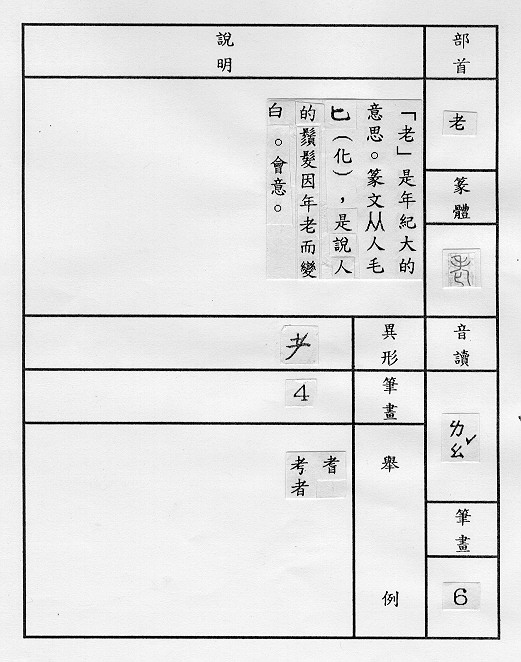 部首
老
篆體
音讀
ㄌㄠˇ
筆畫
6
說明
「老」是年紀大的
意思。篆文从人毛
匕（化），是說人
的鬚髮因年老而變
白。會意。
異形
耂
筆畫
4
舉例
耆
考者